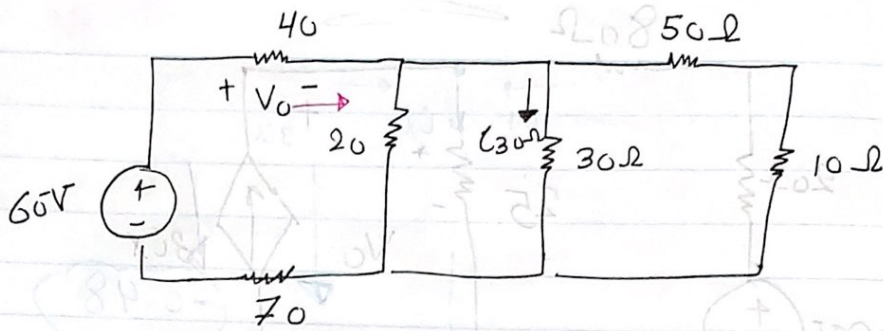 40
50Ω
+ V₀ -
20
i30Ω
30Ω
10Ω
60V
+
-
70